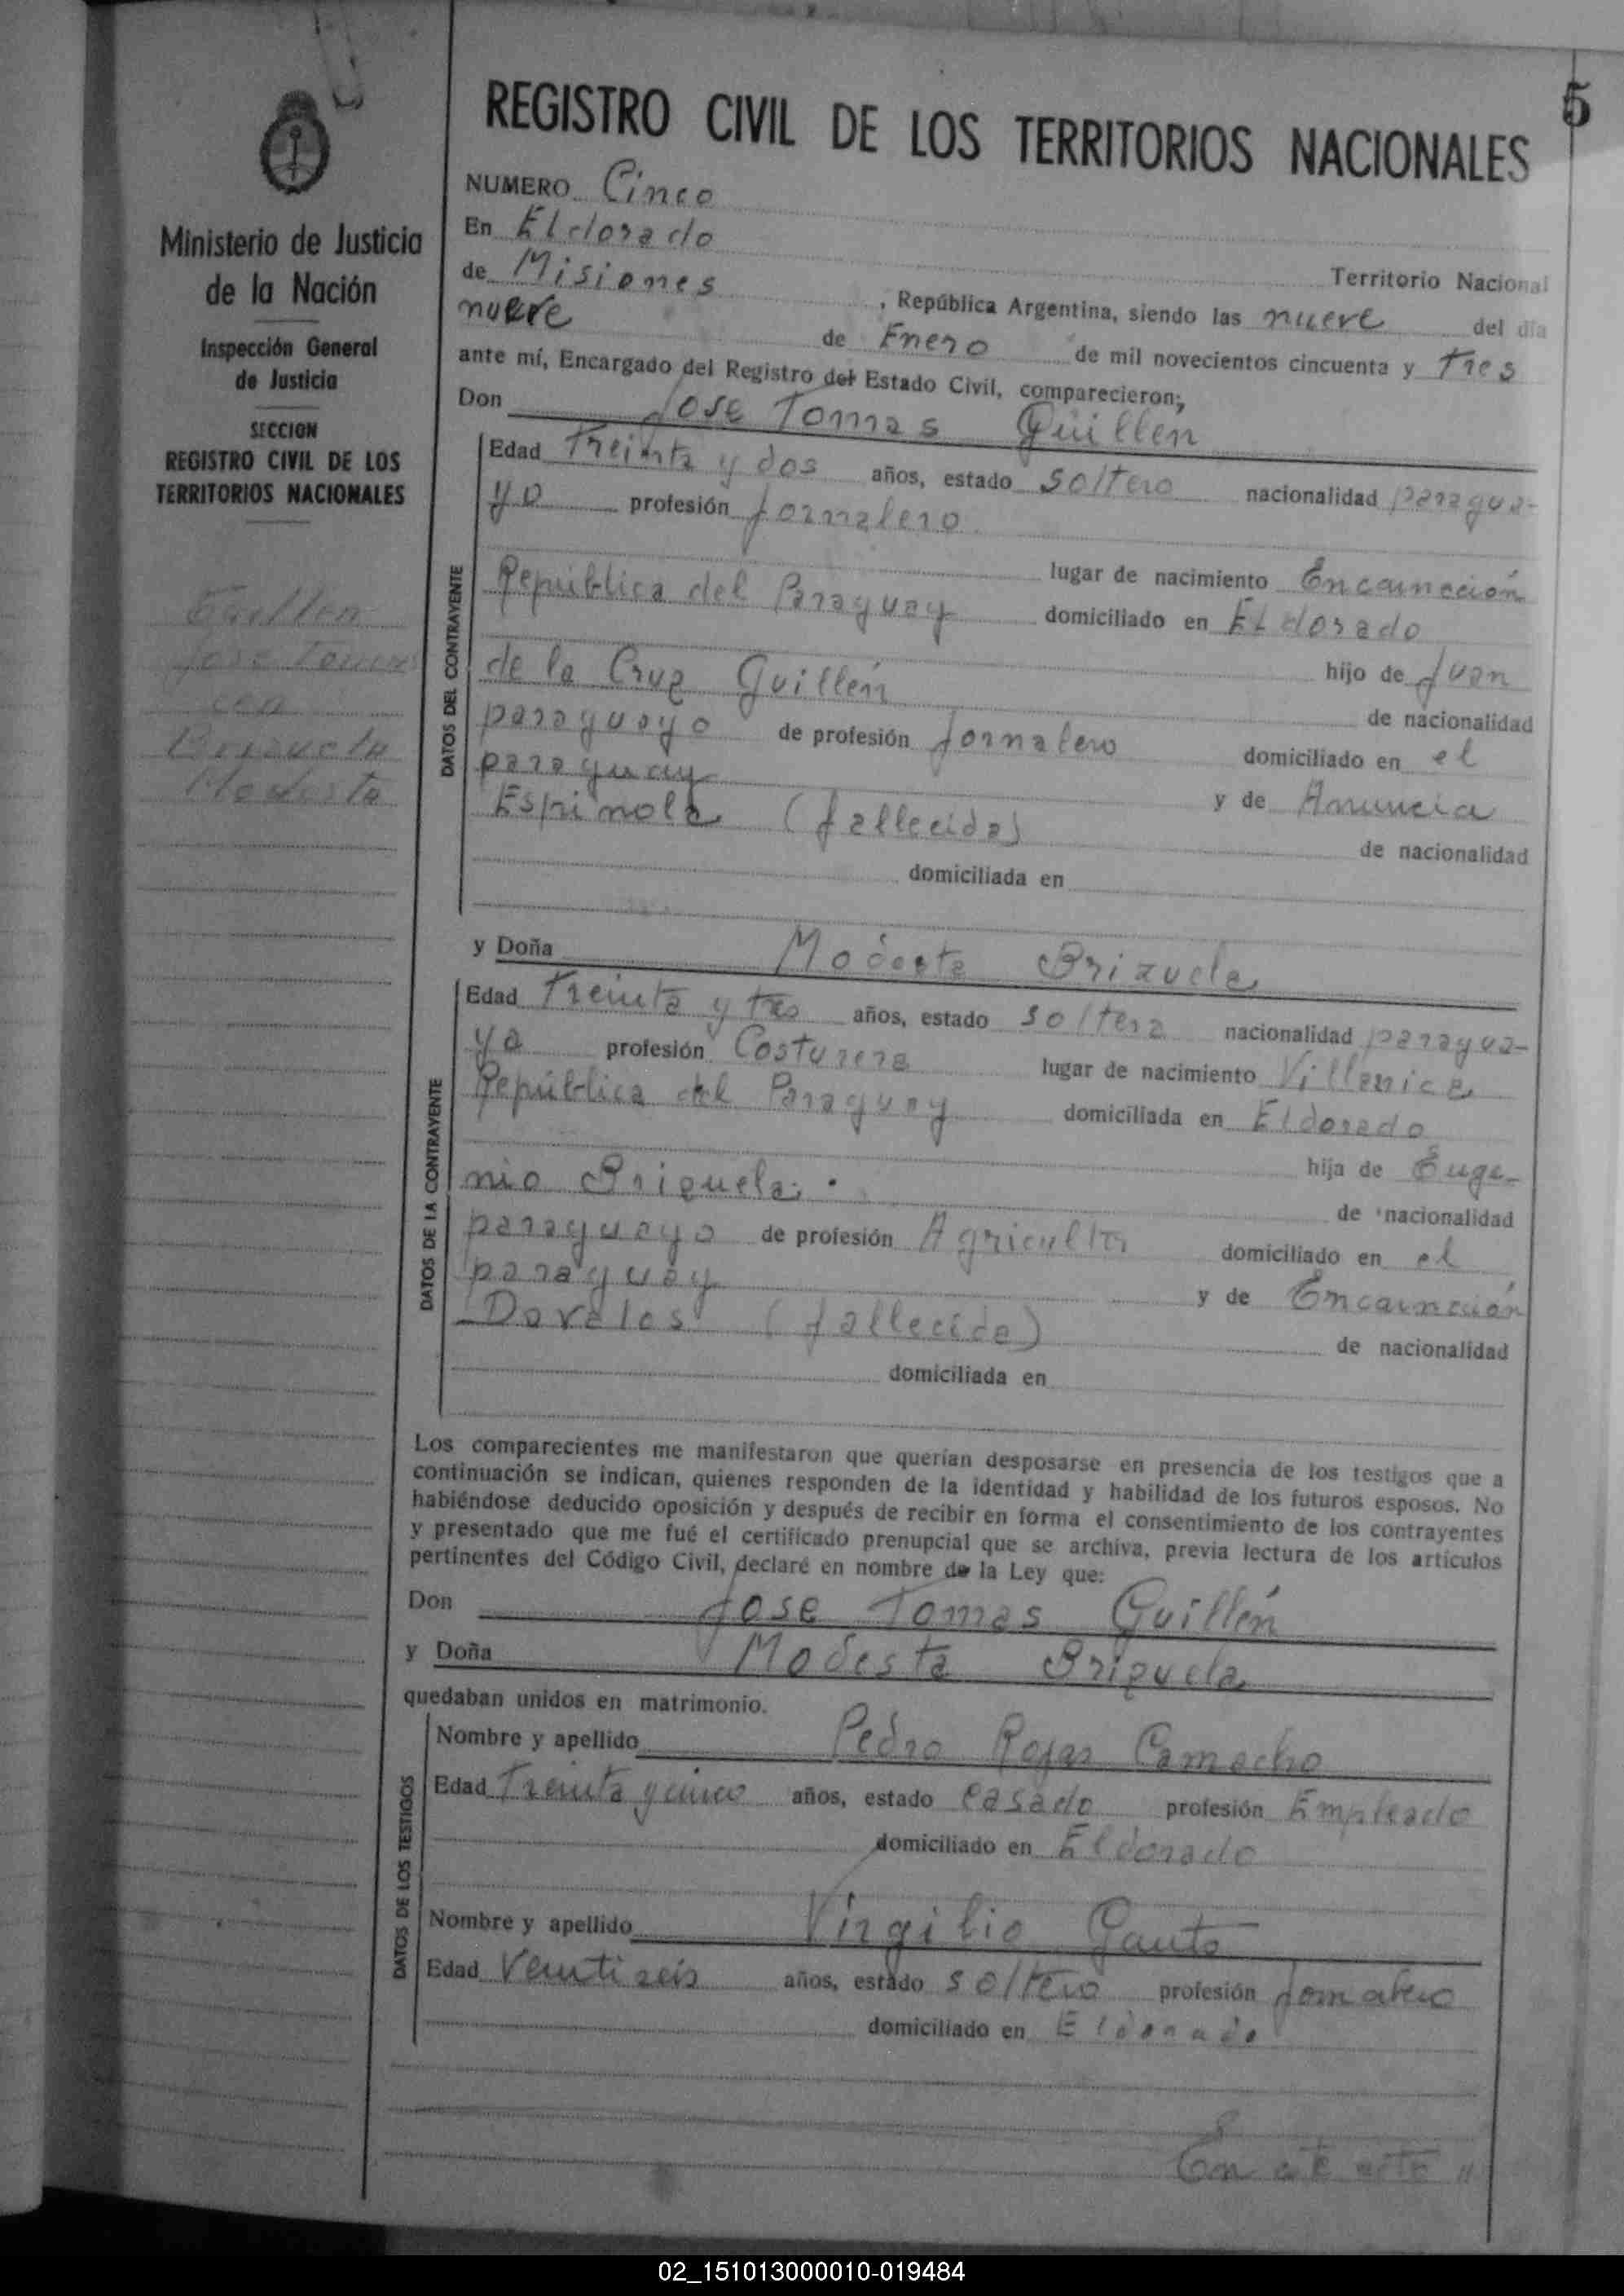 5
REGISTRO CIVIL DE LOS TERRITORIOS NACIONALES
Ministerio de Justicia
de la Nación
Inspección General
de Justicia
SECCION
REGISTRO CIVIL DE LOS
TERRITORIOS NACIONALES
Guillen
Jose Tomas
con
Brizuela
Modesta
NUMERO Cinco
En Eldorado
Territorio Nacional
de Misiones, República Argentina, siendo las nueve del día
nueve de Enero de mil novecientos cincuenta y tres
ante mí, Encargado del Registro del Estado Civil, comparecieron;
Don Jose Tomas Guillen
DATOS DEL CONTRAYENTE
Edad Treinta y dos años, estado soltero nacionalidad paragua-
yo profesión Jornalero
lugar de nacimiento Encarnación
República del Paraguay domiciliado en Eldorado
hijo de Juan
de la Cruz Guillén
de nacionalidad
paraguayo de profesión Jornalero domiciliado en el
paraguay y de Anuncia
Espinola (fallecida)
de nacionalidad
domiciliada en
y Doña Modesta Brizuela
DATOS DE LA CONTRAYENTE
Edad Treinta y tres años, estado soltera nacionalidad paragua-
ya profesión Costurera lugar de nacimiento Villarica
República del Paraguay domiciliada en Eldorado
hija de Euge-
nio Brizuela
de nacionalidad
paraguayo de profesión Agricultor domiciliado en el
paraguay y de Encarnación
Dovalos (fallecida)
de nacionalidad
domiciliada en
Los comparecientes me manifestaron que querían desposarse en presencia de los testigos que a
continuación se indican, quienes responden de la identidad y habilidad de los futuros esposos. No
habiéndose deducido oposición y después de recibir en forma el consentimiento de los contrayentes
y presentado que me fué el certificado prenupcial que se archiva, previa lectura de los artículos
pertinentes del Código Civil, declaré en nombre de la Ley que:
Don Jose Tomas Guillén
y Doña Modesta Brizuela
quedaban unidos en matrimonio.
DATOS DE LOS TESTIGOS
Nombre y apellido Pedro Rojas Camacho
Edad Treinta y cinco años, estado casado profesión Empleado
domiciliado en Eldorado
Nombre y apellido Virgilio Gauto
Edad Veintiseis años, estado soltero profesión Jornalero
domiciliado en Eldorado
En este acto //
02_151013000010-019484